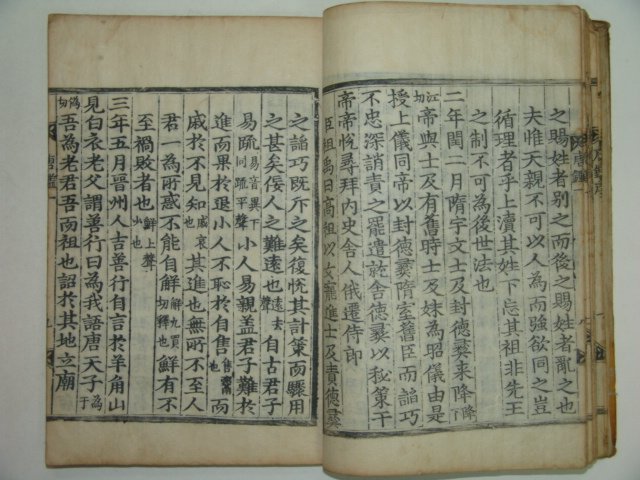 之賜姓者別之而後之賜姓者亂之也
夫惟天親不可以人為而強欲同之豈
循理者乎上瀆其姓下忘其祖非先王
之制不可為後世法也
二年閏二月隋宇文士及封德彝來降
帝與士及有舊時士及妹為昭儀由是
授上儀同帝以封德彝隋室舊臣而諂巧
不忠深誚責之罷遣於舍德彝以秘策干
帝帝悅尋拜內史舍人俄遷侍郎
臣祖禹曰高祖以女寵進士及責德彝
之諂巧既斥之矣復悅其計策而驟用
之甚矣佞人之難遠也遠去聲自古君子
易疏易音異下同疏平聲小人易親蓋君子難於
進而果於退小人不恥於自售售鬻也而
戚於不見知也戚哀也其進也無所不至人
君一為所惑不能自解解九買切釋也鮮有不
至禍敗者也鮮上聲
三年五月晉州人吉善行自言於羊角山
見白衣老父謂善行曰為我語唐天子為于
偽切吾為老君吾而祖也詔於其地立廟
唐鑑一